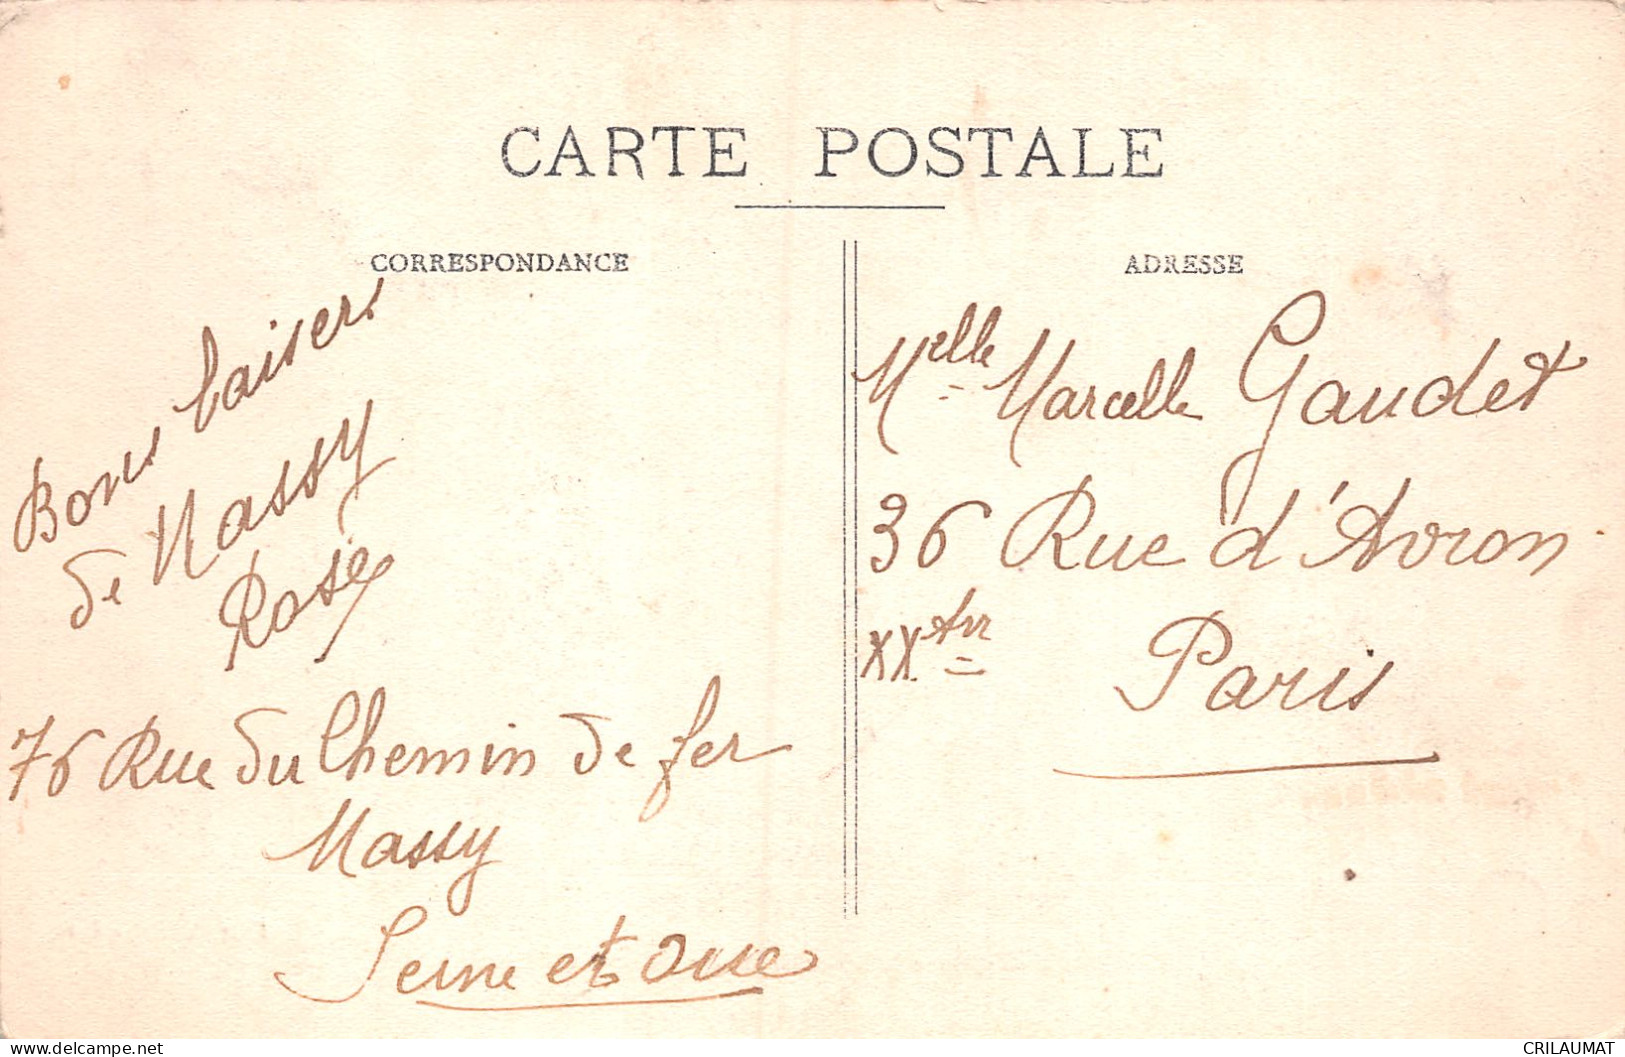 CARTE POSTALE
CORRESPONDANCE
Bons baisers
de Massy
Rose
76 Rue du Chemin de fer
Massy
Seine et Oise
ADRESSE
Melle Marcelle Gaudet
36 Rue d'Avron
XXe Arr
Paris
www.delcampe.net
CRILAUMAT